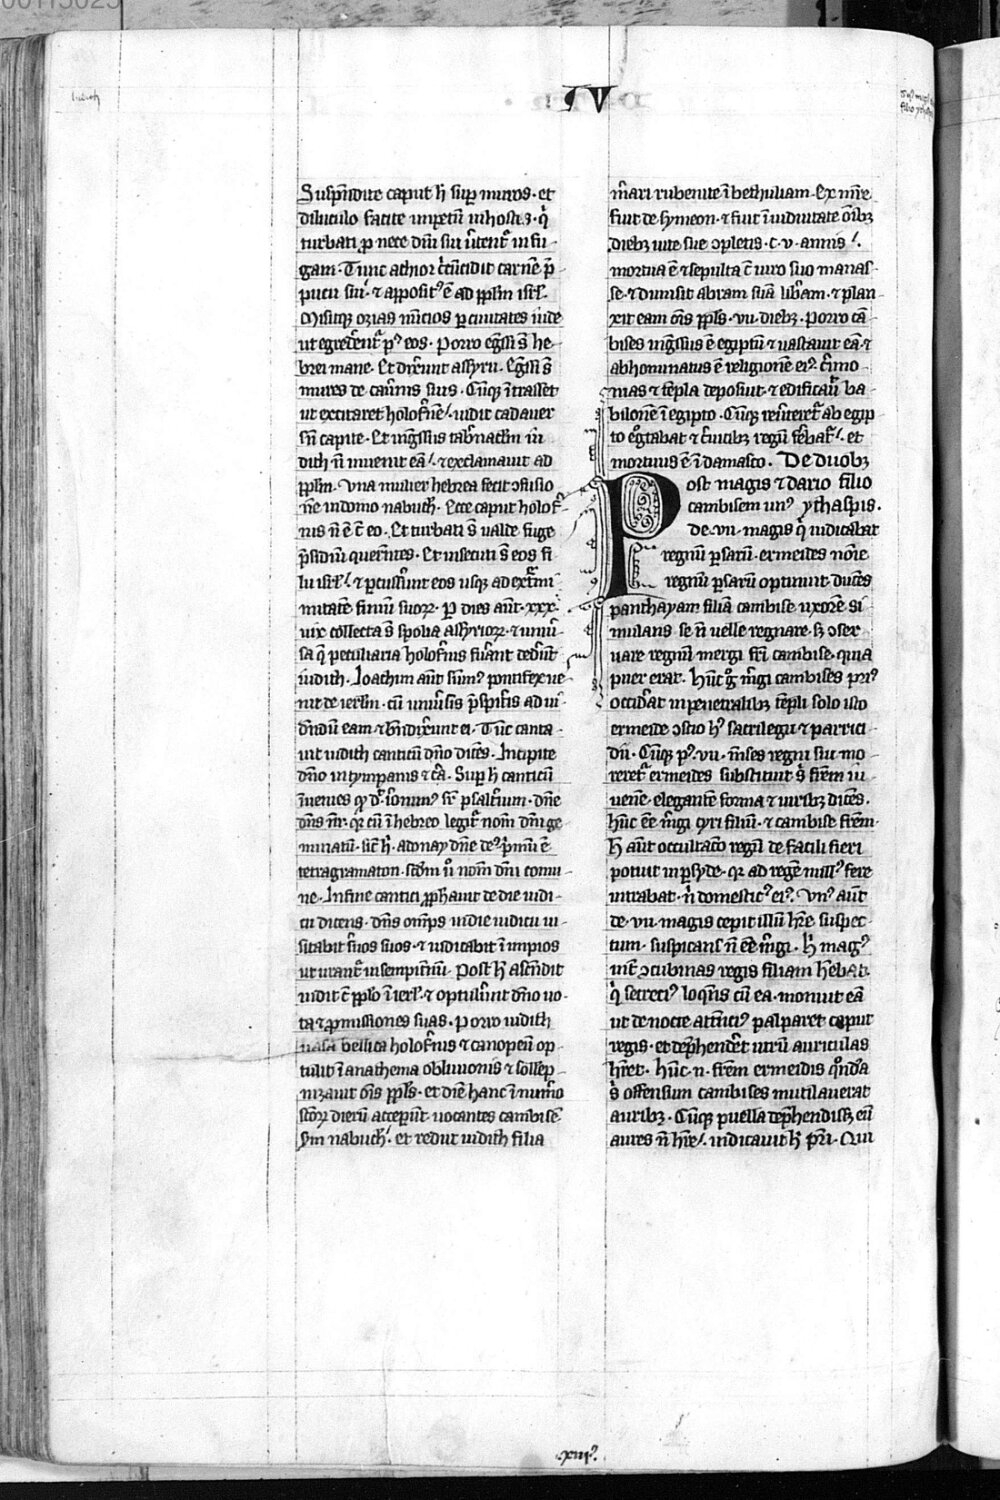 00113023
iudith
IV
Suspendite caput h̄ sup muros · et
diluculo facite impetū in hostes · q̄
turbati p̄ nece dn̄i sui uertent̄ in fu-
gam · Tunc achior c̄cūcidit carnē p̄-
pucii sui · ⁊ apposit⁹ ē ad pplm isrl̄ ·
Misitq; ozias nūcios p ciuitates iude
ut egredent̄ p⁹ eos · Porro eḡssi s̄ he-
brei mane · Et dixerunt assyrii · Eḡssi s̄
mures de cauernis suis · Cūq; ītrasset
ut excitaret holofnē · uidit cadauer
sn̄ capite · Et inḡssus tab̄nacl̄m iu
dith n̄ inuenit eā · ⁊ exclamauit ad
pplm · Vna mulier hebrea fecit ↄfusio
nē in domo nabuch · Ecce caput holof̄
nis n̄ ē c̄ eo · Et turbati s̄ ualde fuge
p̄sidiū querentes · Et insecuti s̄ eos fi
lii isrl̄ · ⁊ pcusserunt eos usq; ad ext̄mi
mitatē finiū suoꝝ · P dies aūt · xxx ·
uix collecta s̄ spolia assyrioꝝ · ⁊ uniū-
sa q̄ peculiaria holofnis fuerant dederūt
iudith · Ioachim aūt sūm⁹ pontifex ue-
nit de ierlm̄ · cū uniūsis p̄sbiteris ad ui-
dendū eam ⁊ bn̄dixerunt ei · Tūc canta-
uit iudith canticū dn̄o dicēs · Incipite
dn̄o in tympanis ⁊ c̄a · Sup h̄ canticū
īuenies
dn̄s
minatū · sic h̄ · adonay dn̄e de⁹
tetragramaton · scdm u̇ nom̄ dn̄i comu-
ne · In fine cantici pphauit de die iudi-
cii dicens · dn̄s omps in die iudicii ui-
sitabit seruos suos · ⁊ uidicabit ī impios
ut urant̄ in sempiternū · Post h̄ ascendit
iudit c̄ pplo ī ierl̄ · ⁊ optulerunt dn̄o uo-
ta ⁊ pmissiones suas · Porro iudith
uasa bellica holofnis ⁊ canopeū op-
tulit ī anathema obliuionis ⁊ sollep-
nizauit om̄s ppls · et diē hanc ī num̄o
sc̄oꝝ dierū acceperūt · uocantes cambisē
nabuch · et rediit iudith filia
m̄ari rubenite ī bethuliam · Ex m̄re
fuit de symeon · ⁊ fuit ī uiduitate om̄ibꝫ
diebꝫ uite sue ↄpletis · c · v · annis ·
mortua ē ⁊ sepulta c̄ uiro suo manas-
se · ⁊ dimisit abram suā lib̄am · ⁊ plan
xit eam om̄s ppls · vii · diebꝫ · Porro cā
bises inḡssus ē egiptū ⁊ uastauit eā · ⁊
abhominatus ē religionē ei⁹ · c̄imo-
nias ⁊ templa deposuit · ⁊ edificauit ba
bilonē ī egipto · Cūq; reuerteret̄ ab egip
to egrotabat ⁊ regū et
mortuus ē ī damasco · De duobꝫ
Post magis ⁊ dario filio
cambisem un⁹ ythaspis ·
de · vii · magis q̄ iudicabat
regnū psarū · ermeides noīe
regnū psarū optinuit · ducēs
panthayam filiā cambise uxorē si
mulans se n̄ uelle regnare · sꝫ ↄser
uare regnū mergi fr̄i cambise · quia
puer erat · Hūc g̊ m̄gi cambises pri⁹
occiderat in penetralibꝫ templi solo isto
ermeide ↄscio h⁹ sacrilegii ⁊ parrici-
dii · Cūq; p⁹ · vii · m̄ses regni sui mo-
reret̄ ermeides substituit s̄ fr̄em iu-
uenē elegantē forma ⁊ uiribꝫ dicēs ·
hūc ēē m̄gi cyri filiū · ⁊ cambise fr̄em ·
H̄ aūt occultatio regū de facili fieri
potuit in psyde · qꝛ ad regē null⁹ fere
intrabat · n̄ domestic⁹ ei⁹ · Vn⁹ aūt
de · vii · magis cepit illū h̄re suspec-
tum · suspicans n̄ ēē m̄gi · h̄ mag⁹
int̄ ↄcubinas regis filiam h̄ebat ·
q̄ secreci⁹ loquens cū ea · monuit eā
ut de nocte attenci⁹ palparet caput
regis · et dep̄henderet utrū auriculas
h̄ret · Hūc · n · fr̄em ermeidis
s̄ offensum cambises mutilauerat
auribꝫ · Cūq; puella dep̄hendisset eū
aures n̄ h̄re · indicauit h̄ pr̄i · Qui
·xiii⁹·